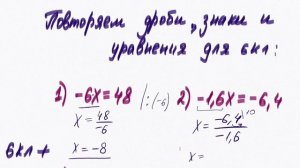 Повторяем дроби, знаки и
уравнения для 6кл:
1) -6x=48 |:(-6) 2) -1,6x=-6,4
x = 48/-6
x = -6,4/-1,6
6кл+ x = -8
x =